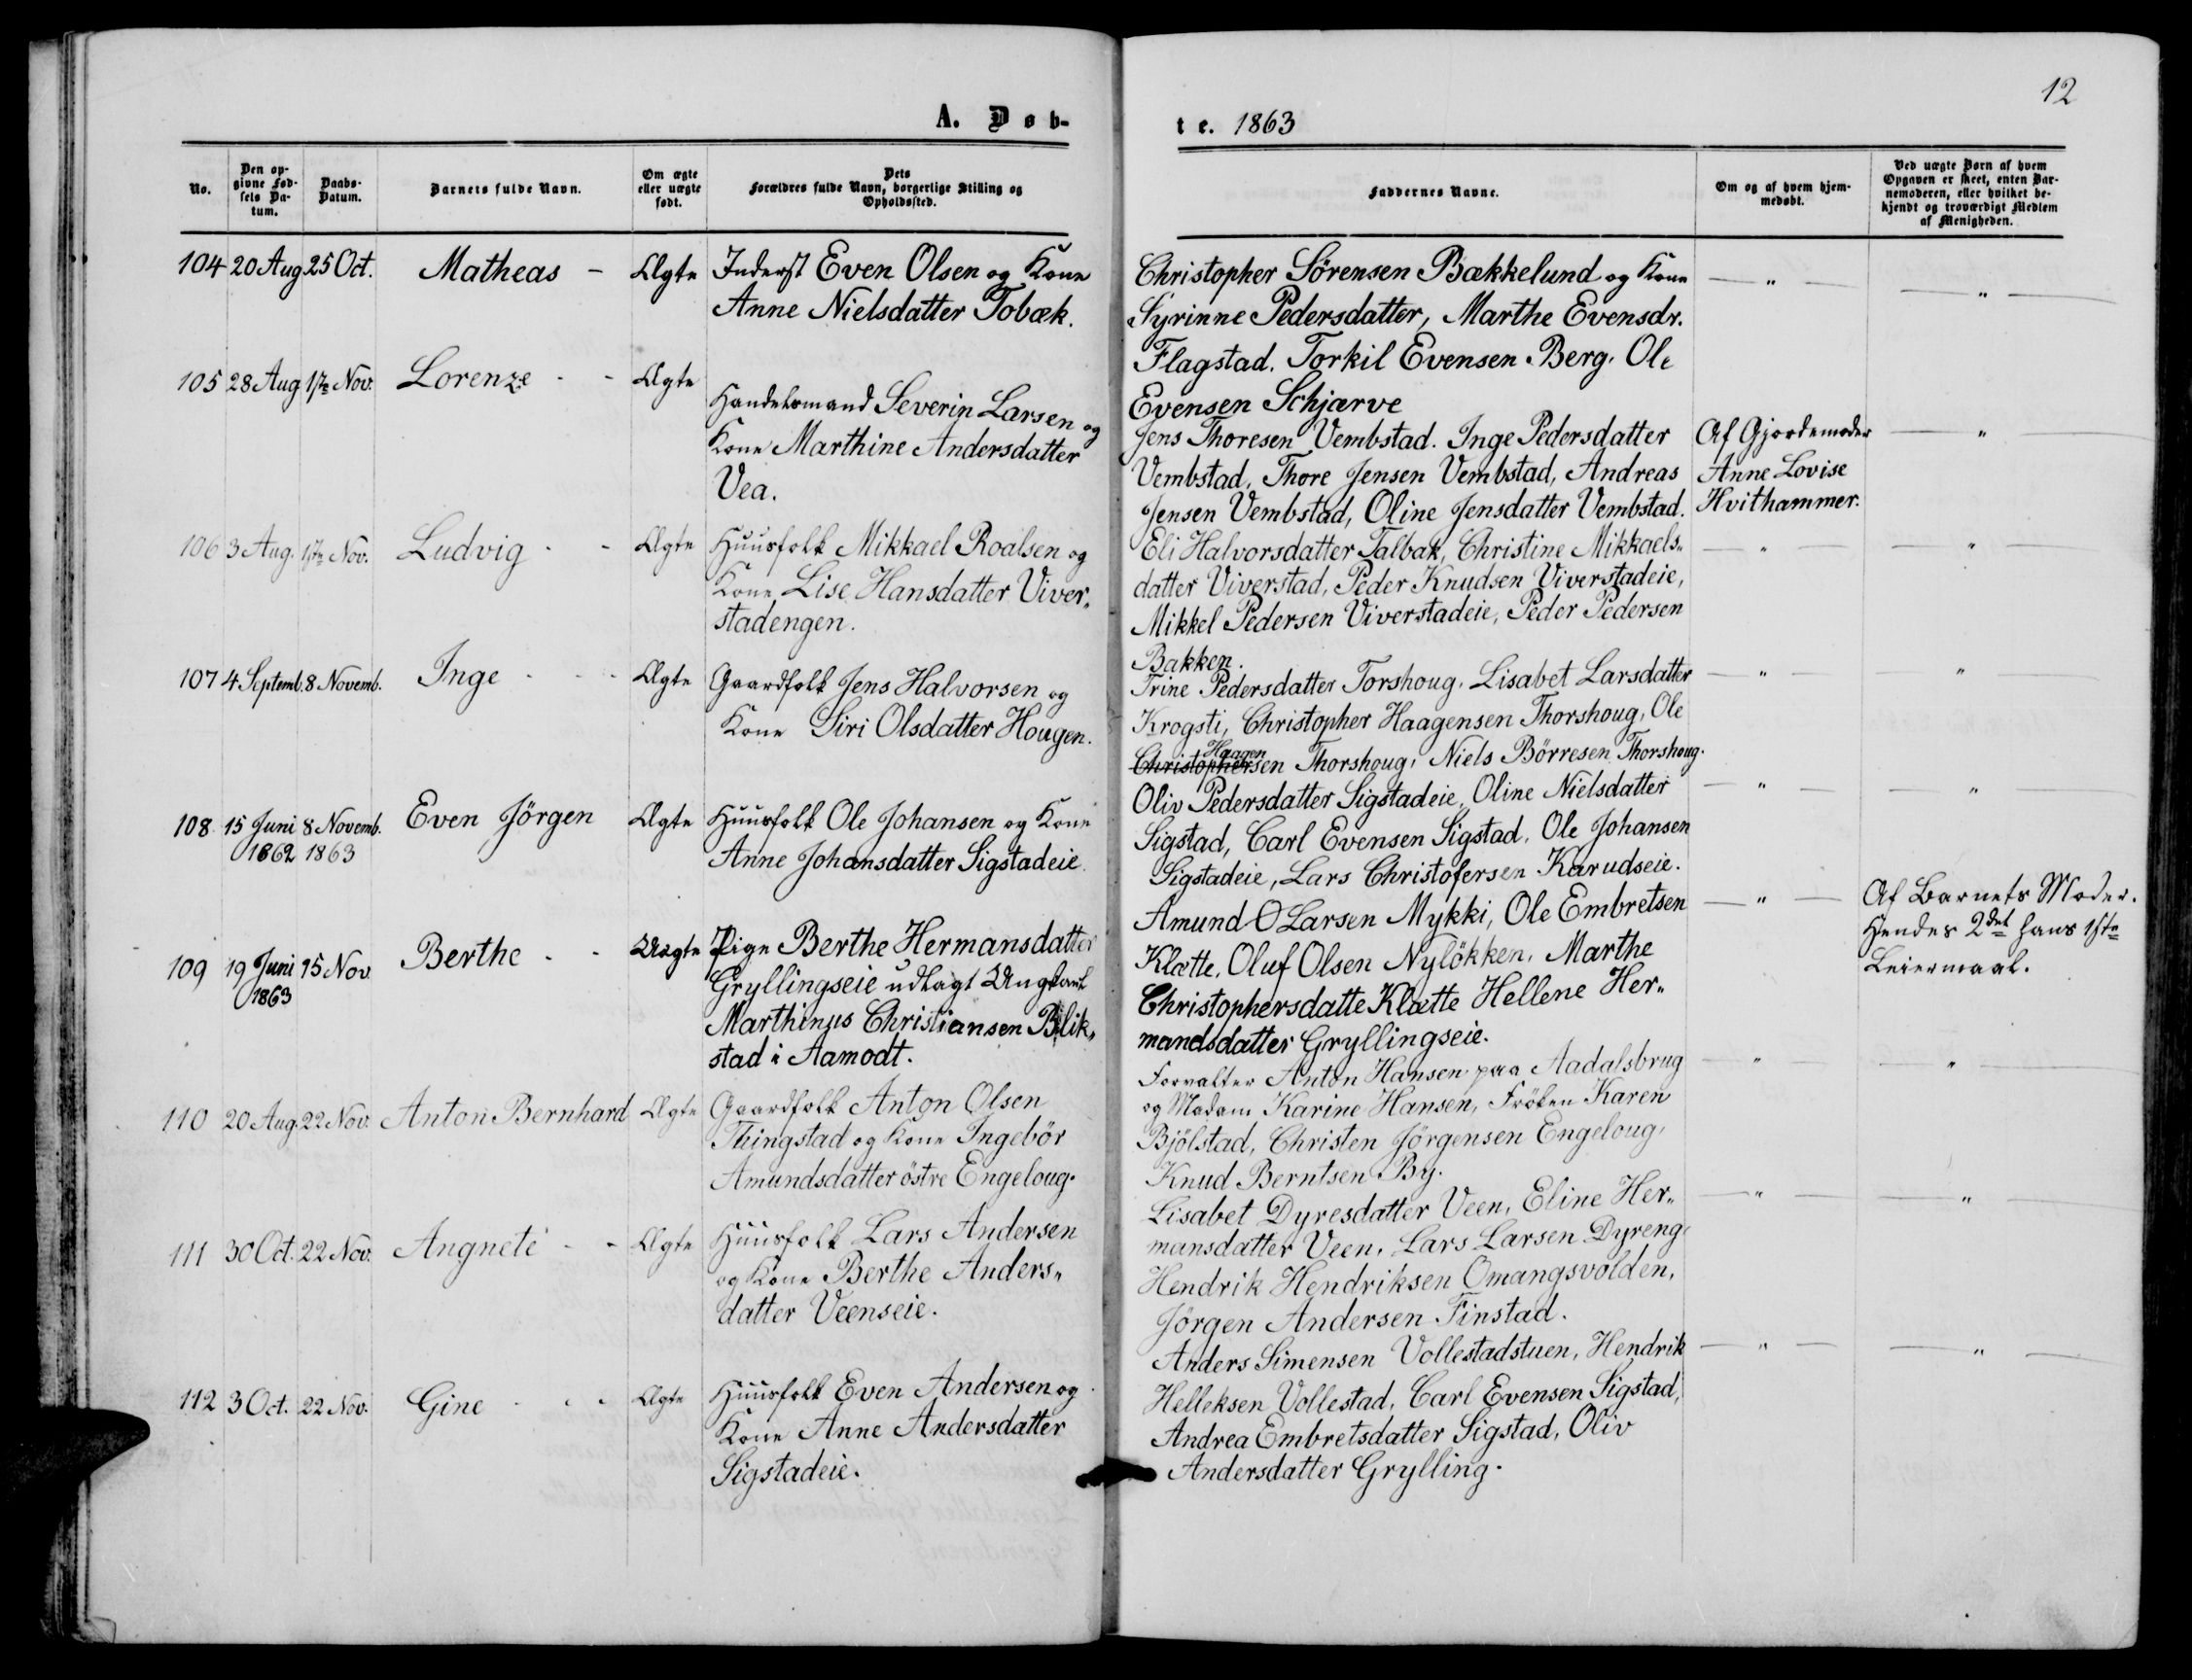 12
A. Døb-
te. 1863
No.
Den op-
givne Fød-
sels Da-
tum.
Daabs-
Datum.
Barnets fulde Navn.
Om ægte
eller uægte
født.
Dets
Forældres fulde Navn, borgerlige Stilling og
Opholdssted.
Faddernes Navne.
Om og af hvem hjem-
medøbt.
Ved uægte Børn af hvem
Opgaven er skeet, enten Bar-
nemoderen, eller hvilket be-
kjendt og troværdigt Medlem
af Menigheden.
104 20 Aug 25 Oct. Matheas - Ægte Inderst Even Olsen og Kone
Anne Nielsdatter Tobæk.
Christopher Sörensen Bækkelund og Kone — " — — " —
Syrinne Pedersdatter, Marthe Evensdr.
Flagstad. Torkil Evensen Berg. Ole
Evensen Schjærve
105 28 Aug 1ste Nov. Lorenze - - Ægte
Handelsmand Severin Larsen og
Kone Marthine Andersdatter
Vea.
Jens Thoresen Vembstad. Inge Pedersdatter
Vembstad, Thore Jensen Vembstad, Andreas
Jensen Vembstad, Oline Jensdatter Vembstad.
Af Gjordemoder — " —
Anne Lovise
Hvithammer.
106 3 Aug. 1ste Nov. Ludvig - - Ægte Huusfolk Mikkael Roalsen og
Kone Lise Hansdatter Viver„
stadengen.
Eli Halvorsdatter Talbak, Christine Mikkaels„ — " — — " —
datter Viverstad, Peder Knudsen Viverstadeie,
Mikkel Pedersen Viverstadeie, Peder Pedersen
Bakken.
107 4 Septemb. 8 Novemb. Inge - - - Ægte Gaardfolk Jens Halvorsen og
Kone Siri Olsdatter Hougen.
Trine Pedersdatter Torshoug, Lisabet Larsdatter — " — — " —
Krogsti, Christopher Haagensen Thorshoug, Ole
Haagen
Christophersen Thorshoug, Niels Börresen Thorshoug.
108. 15 Juni 8 Novemb. Even Jörgen Ægte Huusfolk Ole Johansen og Kone
1862 1863 Anne Johansdatter Sigstadeie.
Oliv Pedersdatter Sigstadeie, Oline Nielsdatter — " — — " —
Sigstad, Carl Evensen Sigstad, Ole Johansen
Sigstadeie, Lars Christofersen Karudseie.
109 19 Juni 15 Nov. Berthe - - Uægte Pige Berthe Hermansdatter
1863 Gryllingseie udlagt Ungkarl
Marthinus Christiansen Blik„
stad i Aamodt.
Amund O Larsen Mykki, Ole Embretsen — " —
Klætte, Oluf Olsen Nylökken, Marthe
Christophersdatte Klætte Hellene Her„
mandsdatter Gryllingseie.
Af Barnets Moder.
Hendes 2det hans 1ste
Leiermaal.
110 20 Aug. 22 Nov. Anton Bernhard Ægte Gaardfolk Anton Olsen
Thingstad og Kone Ingebör
Amundsdatter östre Engeloug.
Forvalter Anton Hansen paa Aadalsbrug — " — — " —
og Madam Karine Hansen, Fröken Karen
Bjölstad, Christen Jörgensen Engeloug,
Knud Berntsen By.
111 30 Oct. 22 Nov. Angnete - - Ægte Huusfolk Lars Andersen
og Kone Berthe Anders„
datter Veenseie.
Lisabet Dyresdatter Veen, Eline Her„ — " — — " —
mansdatter Veen, Lars Larsen Dyreng,
Hendrik Hendriksen Omangsvolden,
Jörgen Andersen Finstad.
112 3 Oct. 22 Nov. Gine - - - Ægte Huusfolk Even Andersen og
Kone Anne Andersdatter
Sigstadeie.
Anders Simensen Vollestadstuen, Hendrik — " — — " —
Helleksen Vollestad, Carl Evensen Sigstad,
Andrea Embretsdatter Sigstad, Oliv
Andersdatter Grylling.